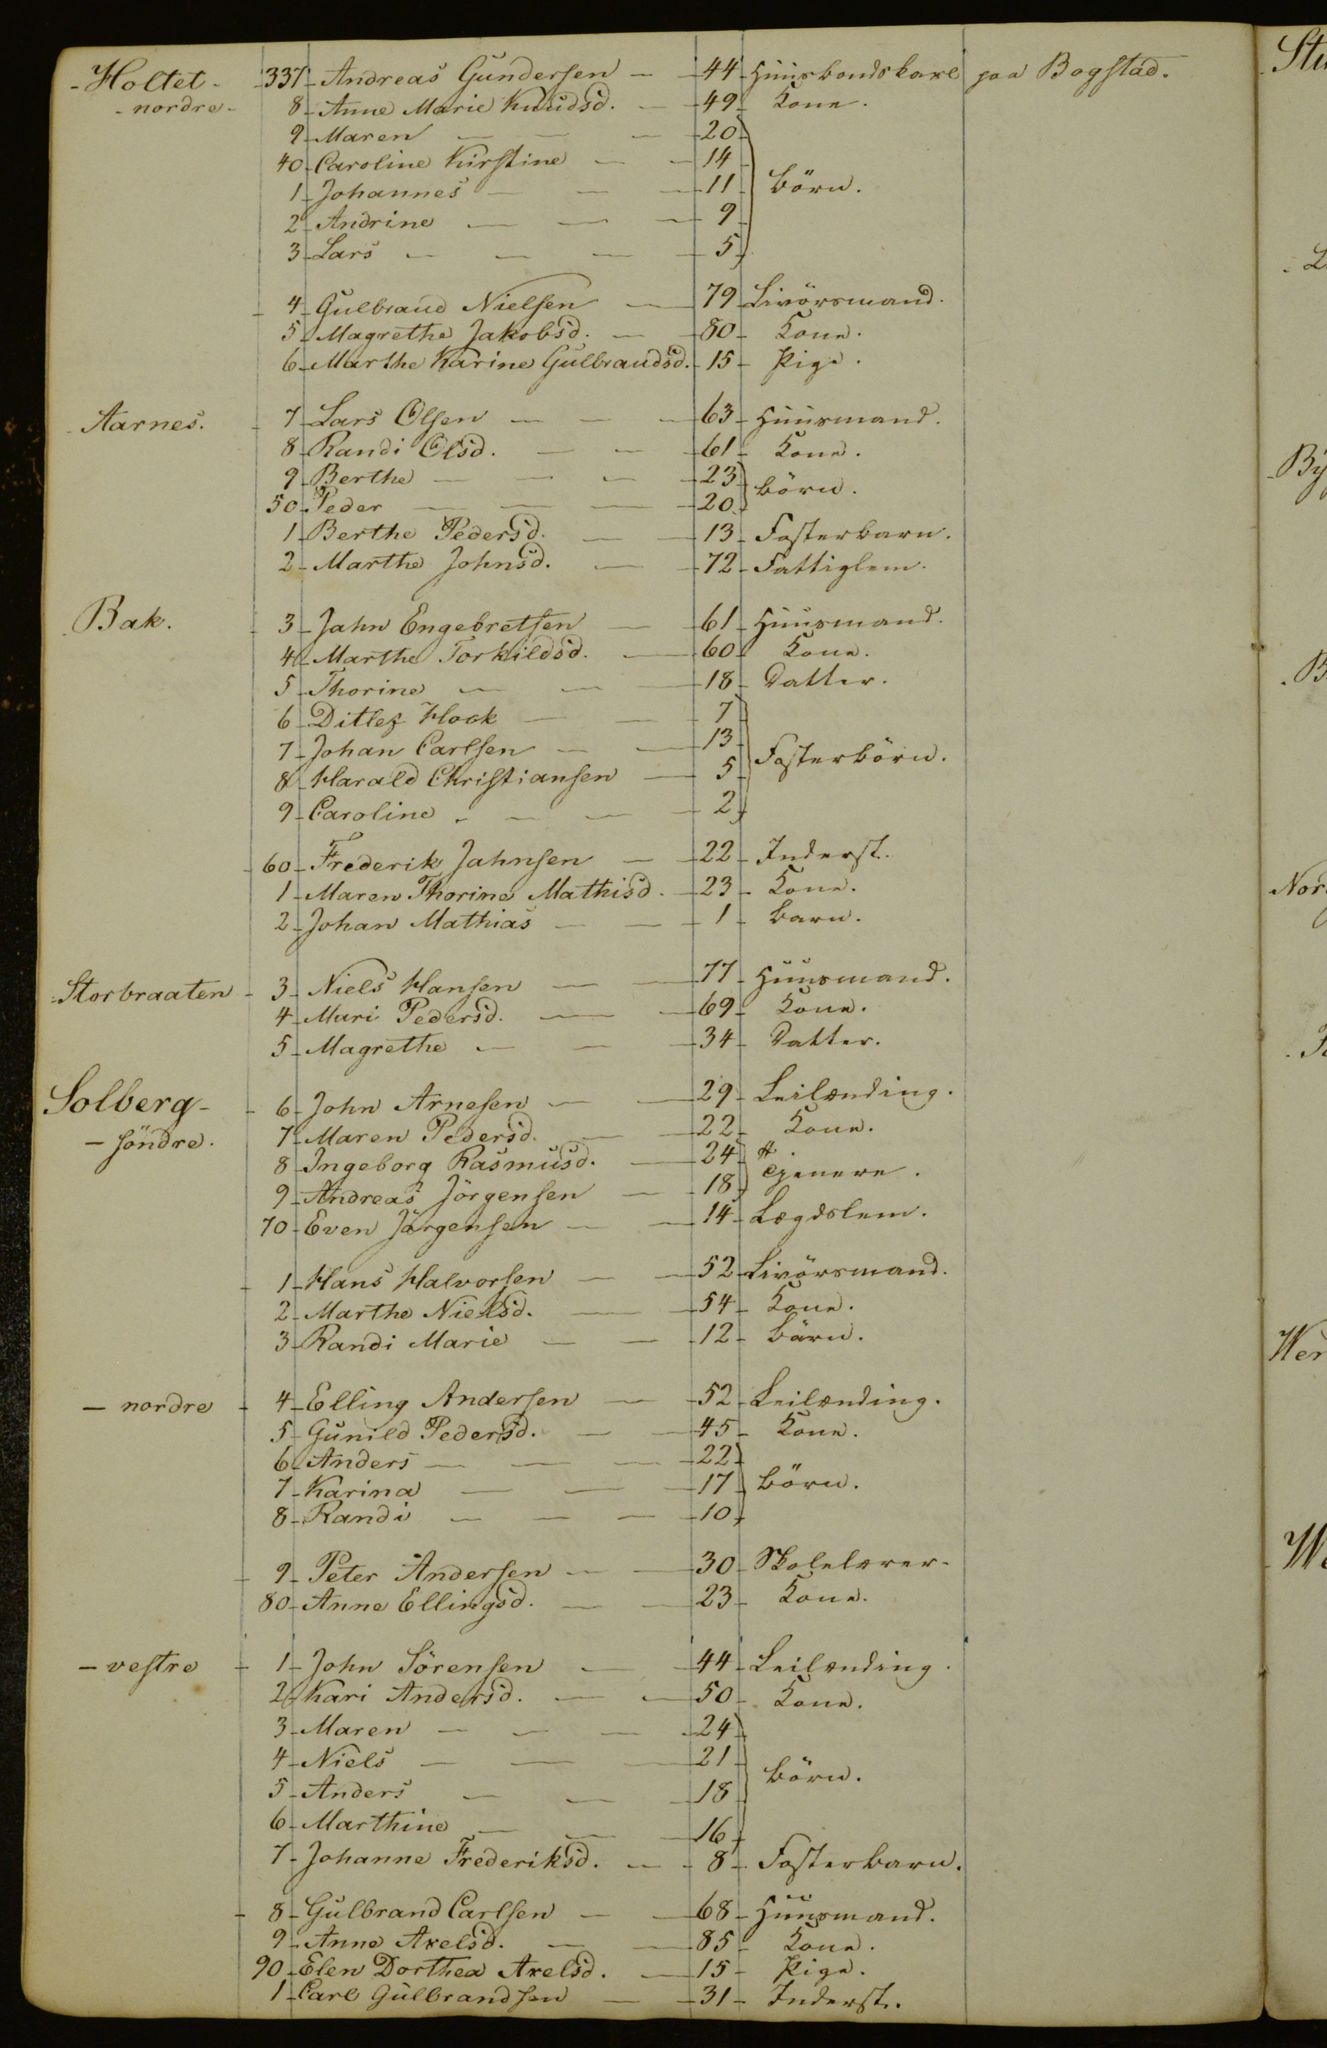 -Holtet- 337 Andreas Gundersen — 44 Huusbondskarl paa Bogstad.
-nordre- 8 Anne Marie Knudsd. — 49 Kone.
9 Maren — — — 20
40 Caroline Kirstine — — 14
1 Johannes — — — 11 Börn.
2 Andrine — — — 9
3 Lars — — — — 5
4 Gulbrand Nielsen — 79 Livörsmand.
5 Magrethe Jakobsd. — 80 Kone.
6 Marthe Karine Gulbrandsd. 15 Pige.
Aarnes. 7 Lars Olsen — — — 63 Huusmand.
8 Randi Olsd. — — — 61 Kone.
9 Berthe — — — — 23 Börn.
50 Peder — — — — 20
1 Berthe Pedersd. — — 13 Fosterbarn.
2 Marthe Johnsd. — — 72 Fattiglem.
Bak. 3 Jahn Engebretsen — 61 Huusmand.
4 Marthe Torkildsd. — 60 Kone.
5 Thorine — — — 18 Datter.
6 Ditlef Hook — — 7
7 Johan Carlsen — — 13 Fosterbörn.
8 Harald Christiansen — 5
9 Caroline — — — 2
60 Frederik Jahnsen — 22 Inderst.
1 Maren Thorine Mathisd. 23 Kone.
2 Johan Mathias — — 1 Barn.
Storbraaten 3 Niels Hansen — — 77 Huusmand.
4 Muri Pedersd. — — 69 Kone.
5 Magrethe — — — 34 Datter.
Solberg- 6 John Arnesen — — 29 Leilænding.
- söndre. 7 Maren Pedersd. — — 22 Kone.
8 Ingeborg Rasmusd. — 24 Tjenere.
9 Andreas Jörgensen — 18
70 Even Jörgensen — — 14 Lægdslem.
1 Hans Halvorsen — — 52 Livörsmand.
2 Marthe Nielsd. — — 54 Kone.
3 Randi Marie — — 12 Barn.
— nordre 4 Elling Andersen — 52 Leilænding.
5 Gunild Pedersd. — — 45 Kone.
6 Anders — — — 22
7 Karina — — — 17 Börn.
8 Randi — — — 10
9 Peter Andersen — — 30 Skolelærer.
80 Anne Ellingsd. — — 23 Kone.
— vestre 1 John Sörensen — — 44 Leilænding.
2 Kari Andersd. — — 50 Kone.
3 Maren — — — 24
4 Niels — — — 21 Börn.
5 Anders — — — 18
6 Marthine — — — 16
7 Johanne Frederiksd. — 8 Fosterbarn.
8 Gulbrand Carlsen — — 68 Huusmand.
9 Anne Axelsd. — — 85 Kone.
90 Elen Dorthea Axelsd. — 15 Pige.
1 Carl Gulbrandsen — — 31 Inderst.